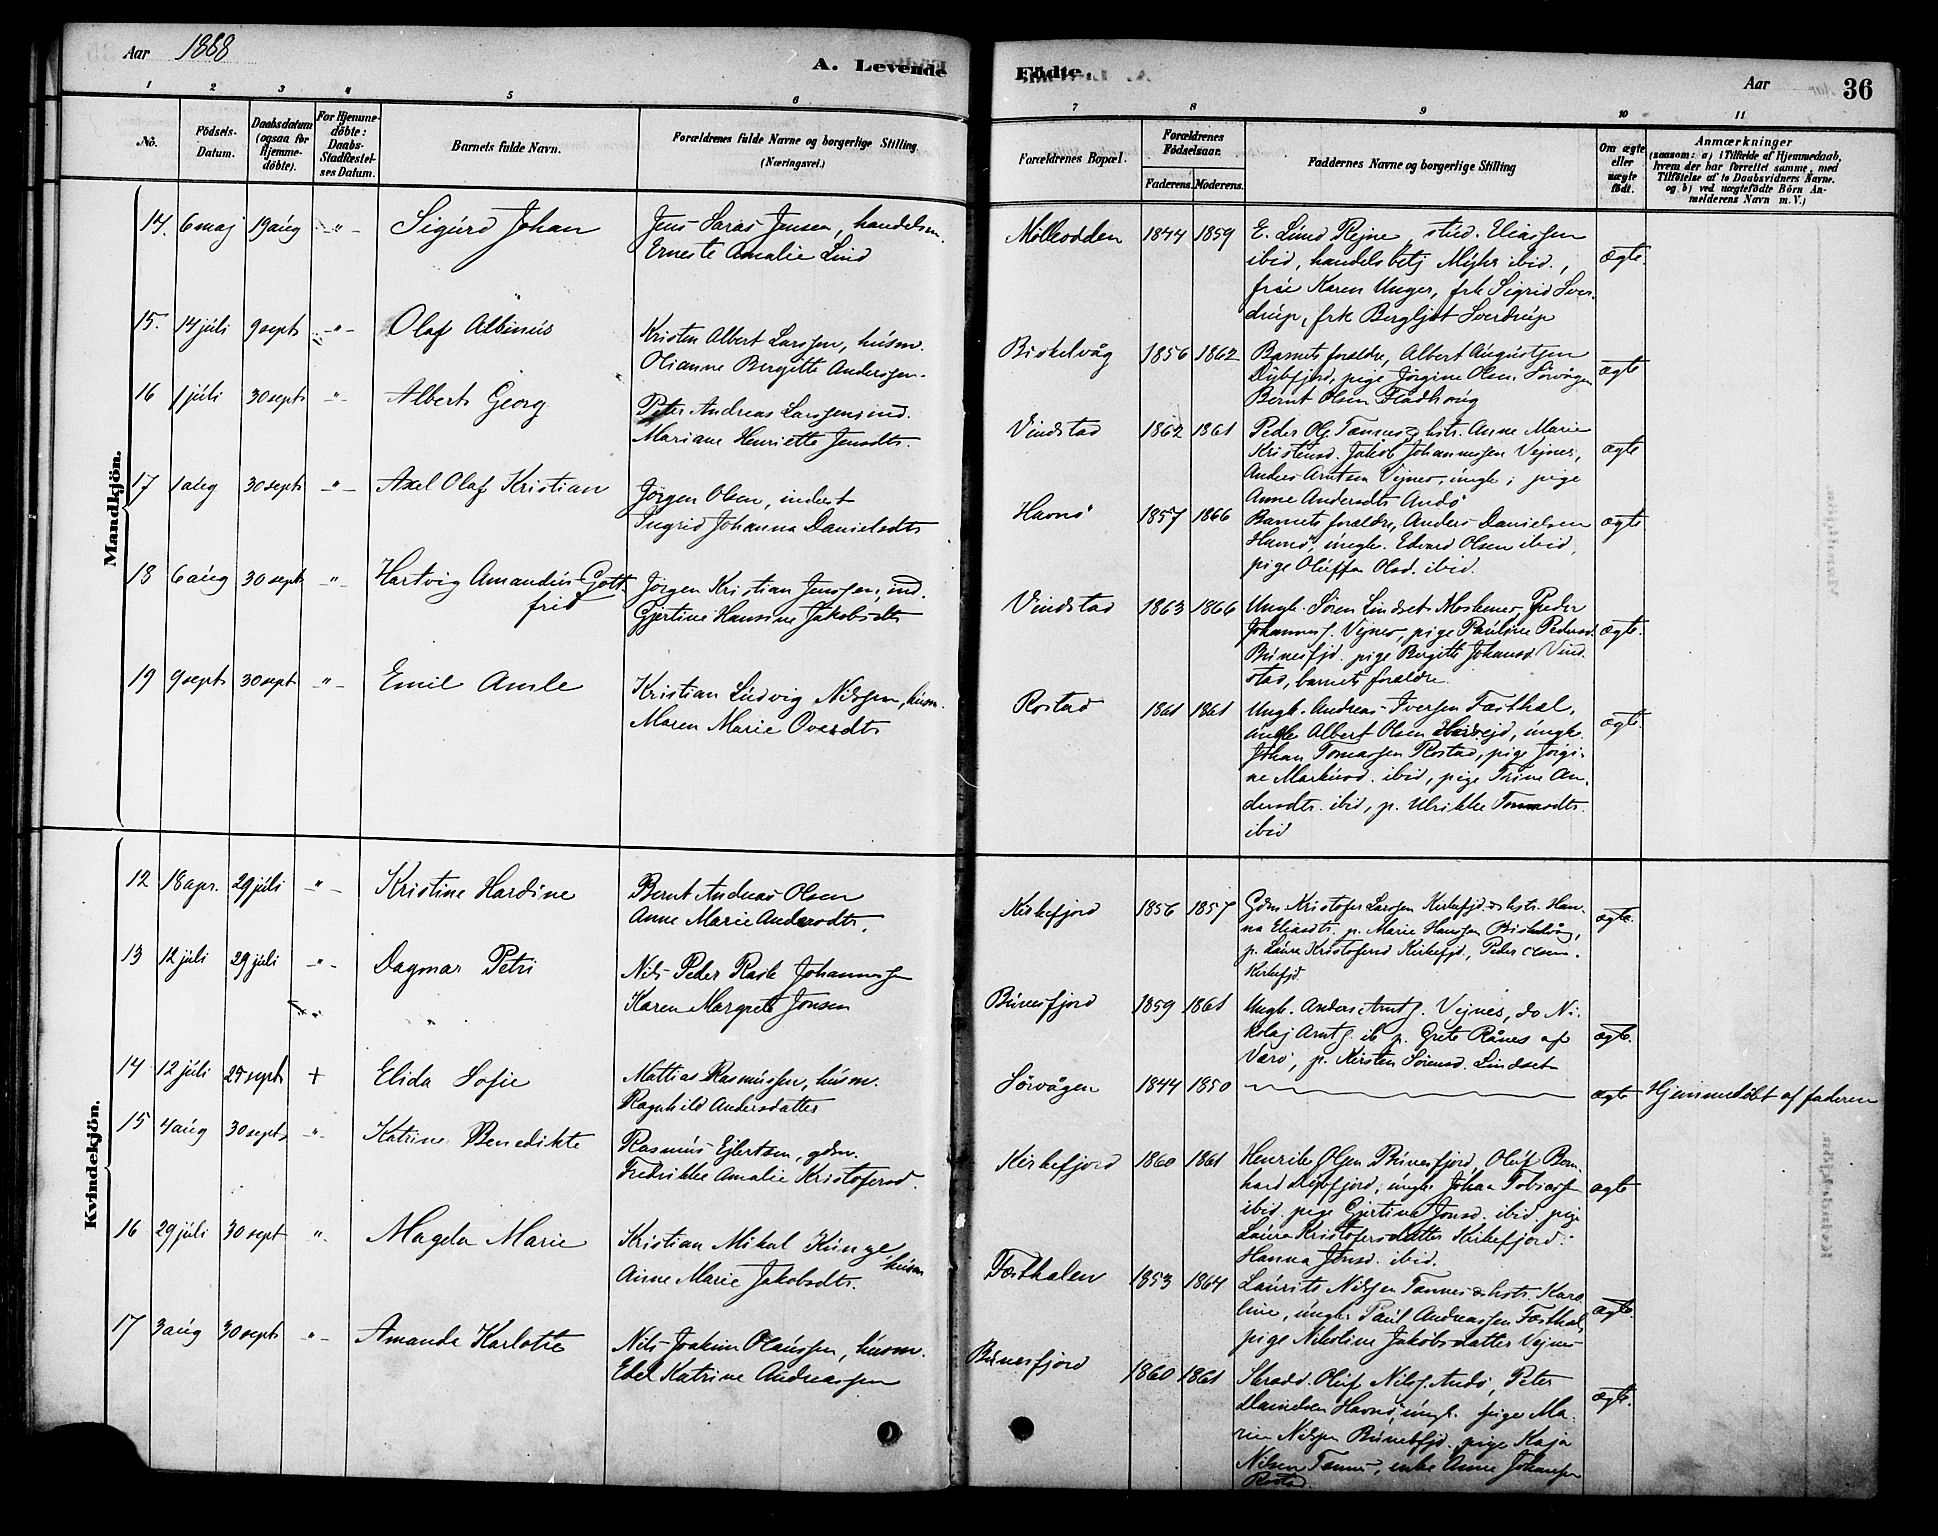 Aar 1888
A. Levende
Födte.
Aar
36
1 2 3 4 5 6 7 8 9 10 11
No.
Födsels-
Datum.
Daabsdatum
(ogsaa for
Hjemme-
döbte).
For Hjemme-
döbte:
Daabs-
Stadfæstel-
ses Datum.
Barnets fulde Navn.
Forældrenes fulde Navne og borgerlige Stilling
(Næringsvei.)
Forældrenes Bopæl.
Forældrenes
Födselsaar.
Faderens. Moderens.
Faddernes Navne og borgerlige Stilling
Om ægte
eller
uægte
födt.
Anmærkninger
(saasom: a) i Tilfælde af Hjemmedaab,
hvem der har forrettet samme, med
Tilföielse af to Daabsvidners Navne.
og b) ved uægtefödte Börn An-
melderens Navn m. V.)
Mandkjön.
14. 6 maj 19 aug -"- Sigurd Johan
Jens Saras Jensen, handelsm.
Erneste Amalie Lind
Mølkodden 1844 1859
E. Lund Rejne, stud. Eliassen
ibid, handelsbetj Myhr ibid.,
frue Karen Unger, frk Sigrid Sver-
drup, frk Bergljot Sverdrup
ægte.
15. 14 juli 9 sept -"- Olaf Albinus
Kristen Albert Larssen, husm.
Olianne Bergitte Anderssen.
Biskelvåg 1856 1862
Barnets forældre, Albert Augustsen
Dybfjord, pige Jørgine Olsen Sørvågen
Bernt Olsen Fladhaug
ægte
16 1 juli 30 sept -"- Albert Georg
Peter Andreas Larssen, ind.
Mariane Henriette Jensdtr.
Vindstad 1862 1861
Peder Ols. Tennes & hstr. Anne Marie
Kristensd. Jakob Johannessen Vejnes,
Anders Arntsen Vejnes, ungk; pige
Anne Andersdtr Andö
ægte
17 1 aug 30 sept -"- Axel Olaf Kristian
Jörgen Olsen, inderst
Ingrid Johanna Danielsdtr
Havnö 1857 1866
Barnets forældre, Anders Danielsen
Havnö, ungk. Edvard Olsen ibid,
pige Oluffa Olsd. ibid.
ægte
18 6 aug 30 sept -"- Hartvig Amandus Gott-
frid
Jörgen Kristian Jenssen, ind.
Gjertine Hansine Jakobsdtr
Vindstad 1863 1866
Ungk. Sören Lindset Moskenes, Peder
Johannes. Vejnes, pige Pauline Pedersd.
Bunesfjd. pige Bergitte Johansd. Vind-
stad, barnets forældre.
ægte.
19 9 sept 30 sept -"- Emil Amle
Kristian Ludvig Nilssen, husm.
Maren Marie Oversdtr
Rostad 1861 1861
Ungk. Andreas Iversen Fæsthal,
ungk Albert Olsen ibid, ungk.
Johan Tomassen Rostad, pige Jørgi-
ne Markusd. ibid, pige Trine An-
dersdtr. ibid, p. Ulrikke Tomasdtr.
ibid
ægte.
Kvindekjön.
12 18 apr. 29 juli -"- Kristine Hardine
Bernt Andreas Olsen
Anne Marie Andersdtr.
Kirkefjord 1856 1857
Gdm. Kristofer Larssen Kirkefjd. & hstr. Han-
na Eliasdtr. p. Marie Hanssen Biskelvåg,
p. Laura Kristofersd Kirkefjd., Peder Olsen.
Kirkefjd.
ægte.
13 12 juli 29 juli -"- Dagmar Petri
Nils Peder Rask Johannessen
Karen Margrete Jonsen
Bunesfjord 1859 1861
Ungk. Anders Arnts. Vejnes, do Ni-
kolaj Arnts. ib p. Grete Rånes af
Værö, p. Kirsten Sörensd. Lindset
ægte.
14 12 juli 25 sept + Elida Sofie
Mattias Rasmussen, husm.
Ragnhild Andersdatter
Sörvågen 1844 1850
ægte Hjemmedöbt af faderen
15 4 aug 30 sept -"- Katrine Benedikte
Rasmus Ejlertsen, gdm.
Fredrikke Amalie Kristofersd.
Kirkefjord 1860 1861
Henrik Olsen Bunesfjord, Oluf Bern-
hard Dybfjord, ungk. Johan Tobiassen
ibid. pige Gjertine Jonsd. ibid. pige
Laura Kristofersdatter Kirkefjord.
Hanna Jonsd. ibid.
ægte
16 29 juli 30 sept -"- Magda Marie
Kristian Mikal Kunge, husm
Anne Marie Jakobsdtr.
Fæsthalen 1853 1864
Laurits Nilssen Tennes & hstr. Karo-
line, ungk. Paul Andreassen Fæsthal,
pige Nikoline Jakobsdatter Vejnes
ægte.
17 3 aug 30 sept -"- Amanda Karlotte
Nils Joakim Olaussen, husm.
Edel Katrine Andreassen
Bunesfjord 1860 1861
Skradd. Oluf Nilss. Andö, Peter
Danielsen Havnö, ungk. pige Ma-
ren Nilssen Bunesfjd. pige Kaja
Nilsen Tennes, enke Anne Johansen
Rostad.
ægte.